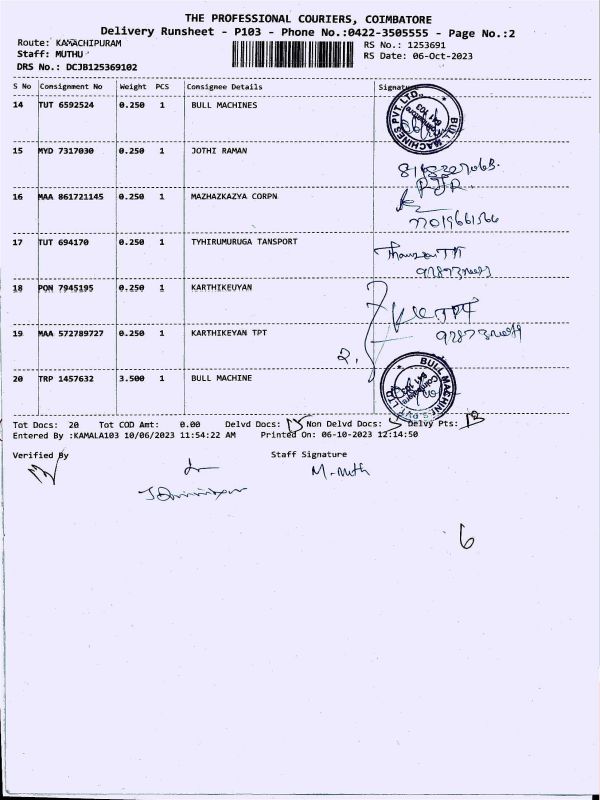 THE PROFESSIONAL COURIERS, COIMBATORE
Delivery Runsheet - P103 - Phone No.:0422-3505555 - Page No.:2
Route: KAMACHIPURAM
RS No.: 1253691
Staff: MUTHU
RS Date: 06-Oct-2023
DRS No.: DCJB125369102
S No Consignment No Weight PCS Consignee Details Signature
14 TUT 6592524 0.250 1 BULL MACHINES
BULL MACHINES PVT. LTD. Coimbatore 641 103
15 MYD 7317030 0.250 1 JOTHI RAMAN
16 MAA 861721145 0.250 1 MAZHAZKAZYA CORPN
17 TUT 694170 0.250 1 TYHIRUMURUGA TANSPORT
18 PON 7945195 0.250 1 KARTHIKEUYAN
19 MAA 572789727 0.250 1 KARTHIKEYAN TPT
2.
20 TRP 1457632 3.500 1 BULL MACHINE
BULL MACHINES PVT. LTD. Coimbatore 641 103
Tot Docs: 20 Tot COD Amt: 0.00 Delvd Docs: 15 Non Delvd Docs: 5 Delvy Pts: 13
Entered By :KAMALA103 10/06/2023 11:54:22 AM Printed On: 06-10-2023 12:14:50
Verified By Staff Signature
M. Muth
6